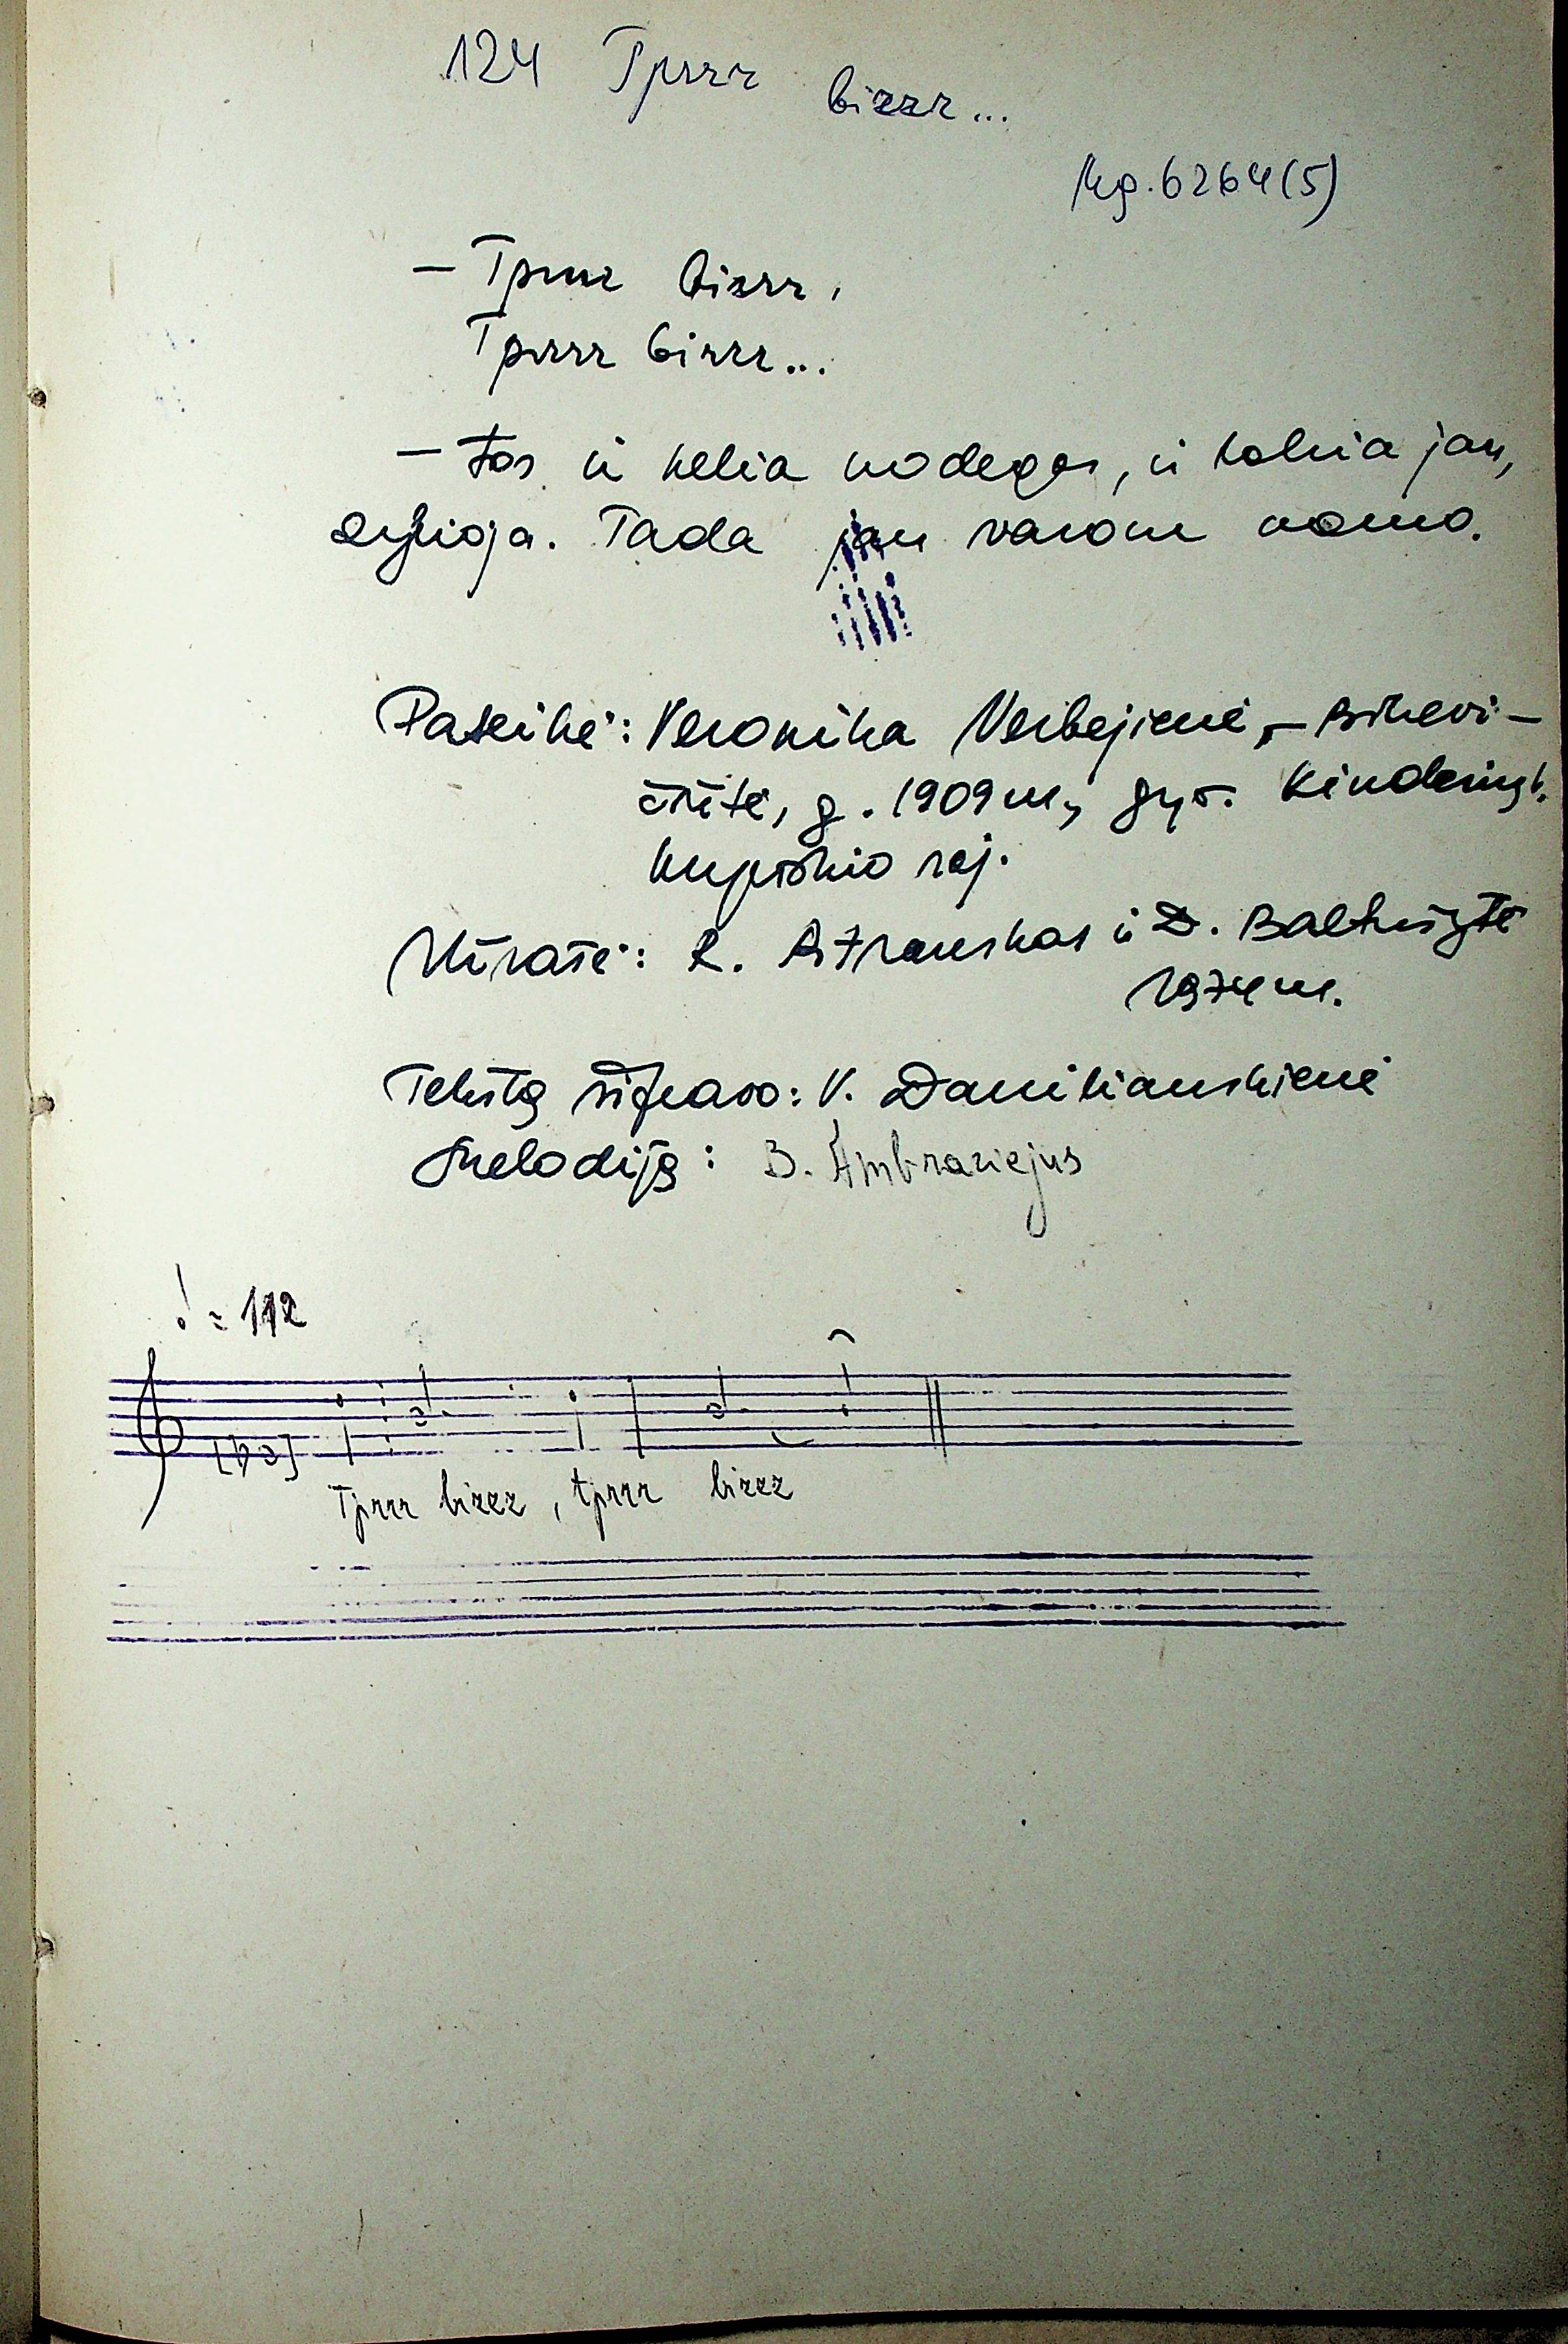 124 Tprrr bizzz...
Mg. 6264(5)
– Tprrr bizzz,
Tprrr bizzz...
– Tos ir kelia uodegas, ir lakia jau,
zylioja. Tada jau varom namo.
Pateikė: Veronika Verbejienė – Bikevi-
čiūtė, g. 1909 m., gyv. k.
Kupiškio raj.
Užrašė: R. Astrauskas ir D. Baltušytė
1974 m.
Tekstą šifravo: V. Daniliauskienė
Melodiją: B. Ambraziejus
♩ = 112
Tprrr bizzz, tprrr bizzz